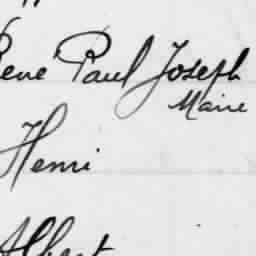 René Paul Joseph
Marie
Henri
Albert